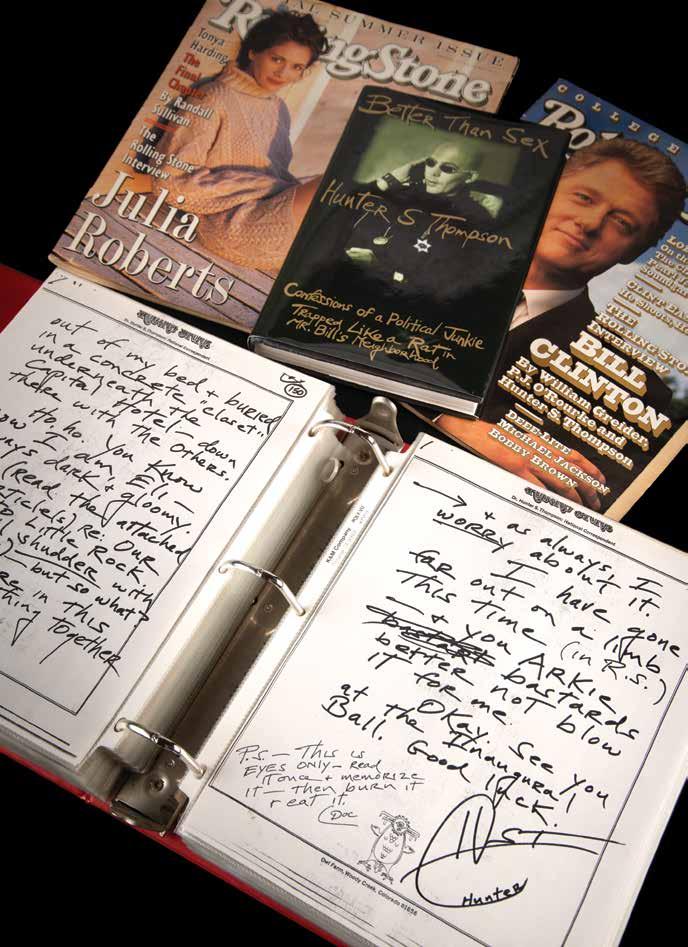 SUMMER ISSUE
RollingStone
Tonya
Harding:
The
Final
Chapter
By Randall
Sullivan
The
Rolling Stone
Interview
Julia
Roberts
Better Than Sex
Hunter S Thompson
Confessions of a Political Junkie
Trapped Like a Rat in
Mr. Bill's Neighborhood
COLLEGE
THE
ROLLING STO
INTERVIEW
BILL
CLINTON
By William Greider,
P.J. O'Rourke and
Hunter S. Thompson
DEEE-LITE
MICHAEL JACKSON
BOBBY BROWN
Dr. Hunter S. Thompson, National Correspondent
150
out of my bed + buried
in a concrete "closet"
underneath the
Capital Hotel - down
there with the others.
Ho, ho. You know
how I am, Eli -
dark + gloomy
(Read the attached
Re: Our
Little Rock
shudder with
- but so what?
in this
thing together
K&M Company
Dr. Hunter S. Thompson, National Correspondent
→ + as always, I
worry about it.
I have gone
far out on a limb
this time (in R.S.)
- + you ARKIE
better not blow
bastards
it for me.
Okay. See you
at the Inaugural
Ball. Good luck.
P.S. - This is
EYES ONLY - read
it once + memorize
it - then burn it
+ eat it.
Doc
HST
Hunter
Owl Farm, Woody Creek, Colorado 81656